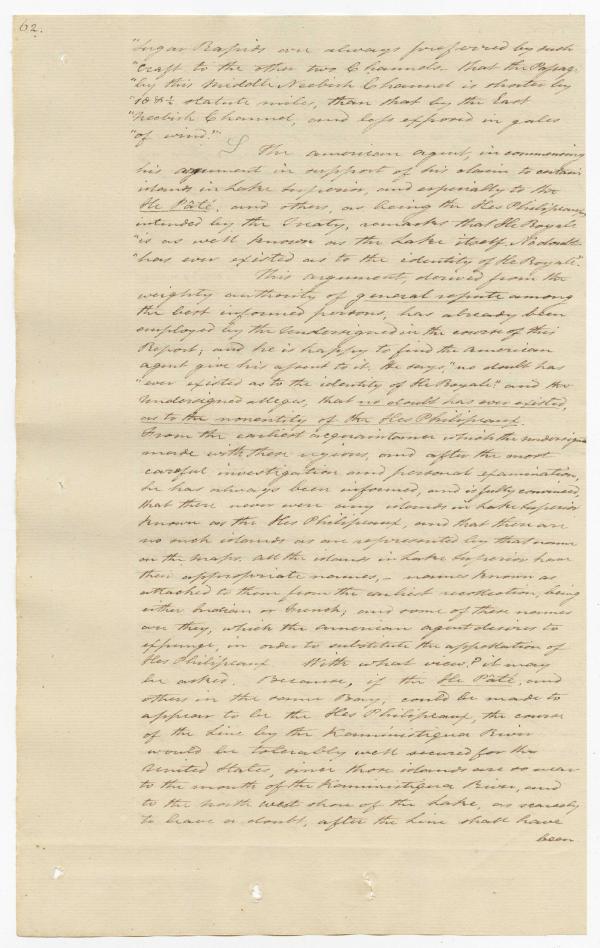 62.
"Sugar Rapids are always preferred by such
"craft to the other two Channels. that the Passage
"by this Middle Neebish Channel is shorter by
"18 8/2 statute miles, than that by the East
"Neebish Channel, and less exposed in gales
"of wind."
The American agent, in commencing
his argument in support of his claim to certain
islands in Lake Superior, and especially to the
Ile Pâté, and others, as being the Iles Philipeaux
intended by the Treaty, remarks that Ile Royale
"is as well known as the Lake itself. No doubt
"has ever existed as to the identity of Ile Royale".
This argument, derived from the
weighty authority of general repute among
the best informed persons, has already been
employed by the Undersigned in the course of this
Report; and he is happy to find the American
agent give his assent to it. He says, "no doubt has
"ever existed as to the identity of Ile Royale". and the
Undersigned alleges, that no doubt has ever existed,
as to the nonentity of the Iles Philipeaux.
From the earliest acquaintance which the undersigned
made with these regions, and after the most
careful investigation and personal examination,
he has always been informed, and is fully convinced,
that there never were any islands in Lake Superior
known as the Iles Philipeaux, and that there are
no such islands as are represented by that name
on the maps. All the islands in Lake Superior have
their appropriate names, – names known as
attached to them from the earliest recollection, being
either Indian or French; and some of these names
are they, which the American agent desires to
expunge, in order to substitute the appellation of
Iles Philipeaux. With what view? it may
be asked. Because, if the Ile Pâté, and
others in the same Bay, could be made to
appear to be the Iles Philipeaux, the course
of the Line by the Kaministiquia River
would be tolerably well secured for the
United States, since those islands are so near
to the mouth of the Kaministiquia River, and
to the north west shore of the Lake, as scarcely
to leave a doubt, after the Line shall have
been